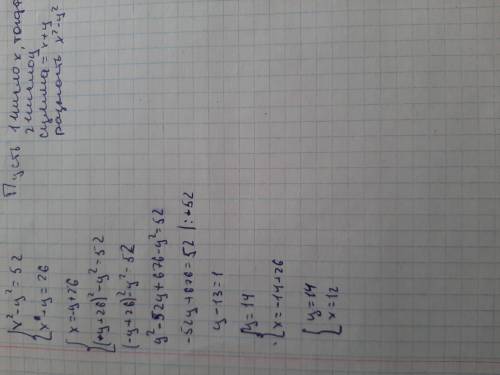 Пусть 1 число x, тогда
2 число y
сумма = x+y
разность x²-y²
{x²-y²=52
{x-y=26
{x=-y+26
{(-y+26)²-y²=52
(-y+26)²-y²=52
y²-52y+676-y²=52
-52y+676=52 |:-52
y-13=1
{y=14
{x=-14+26
{y=14
{x=12